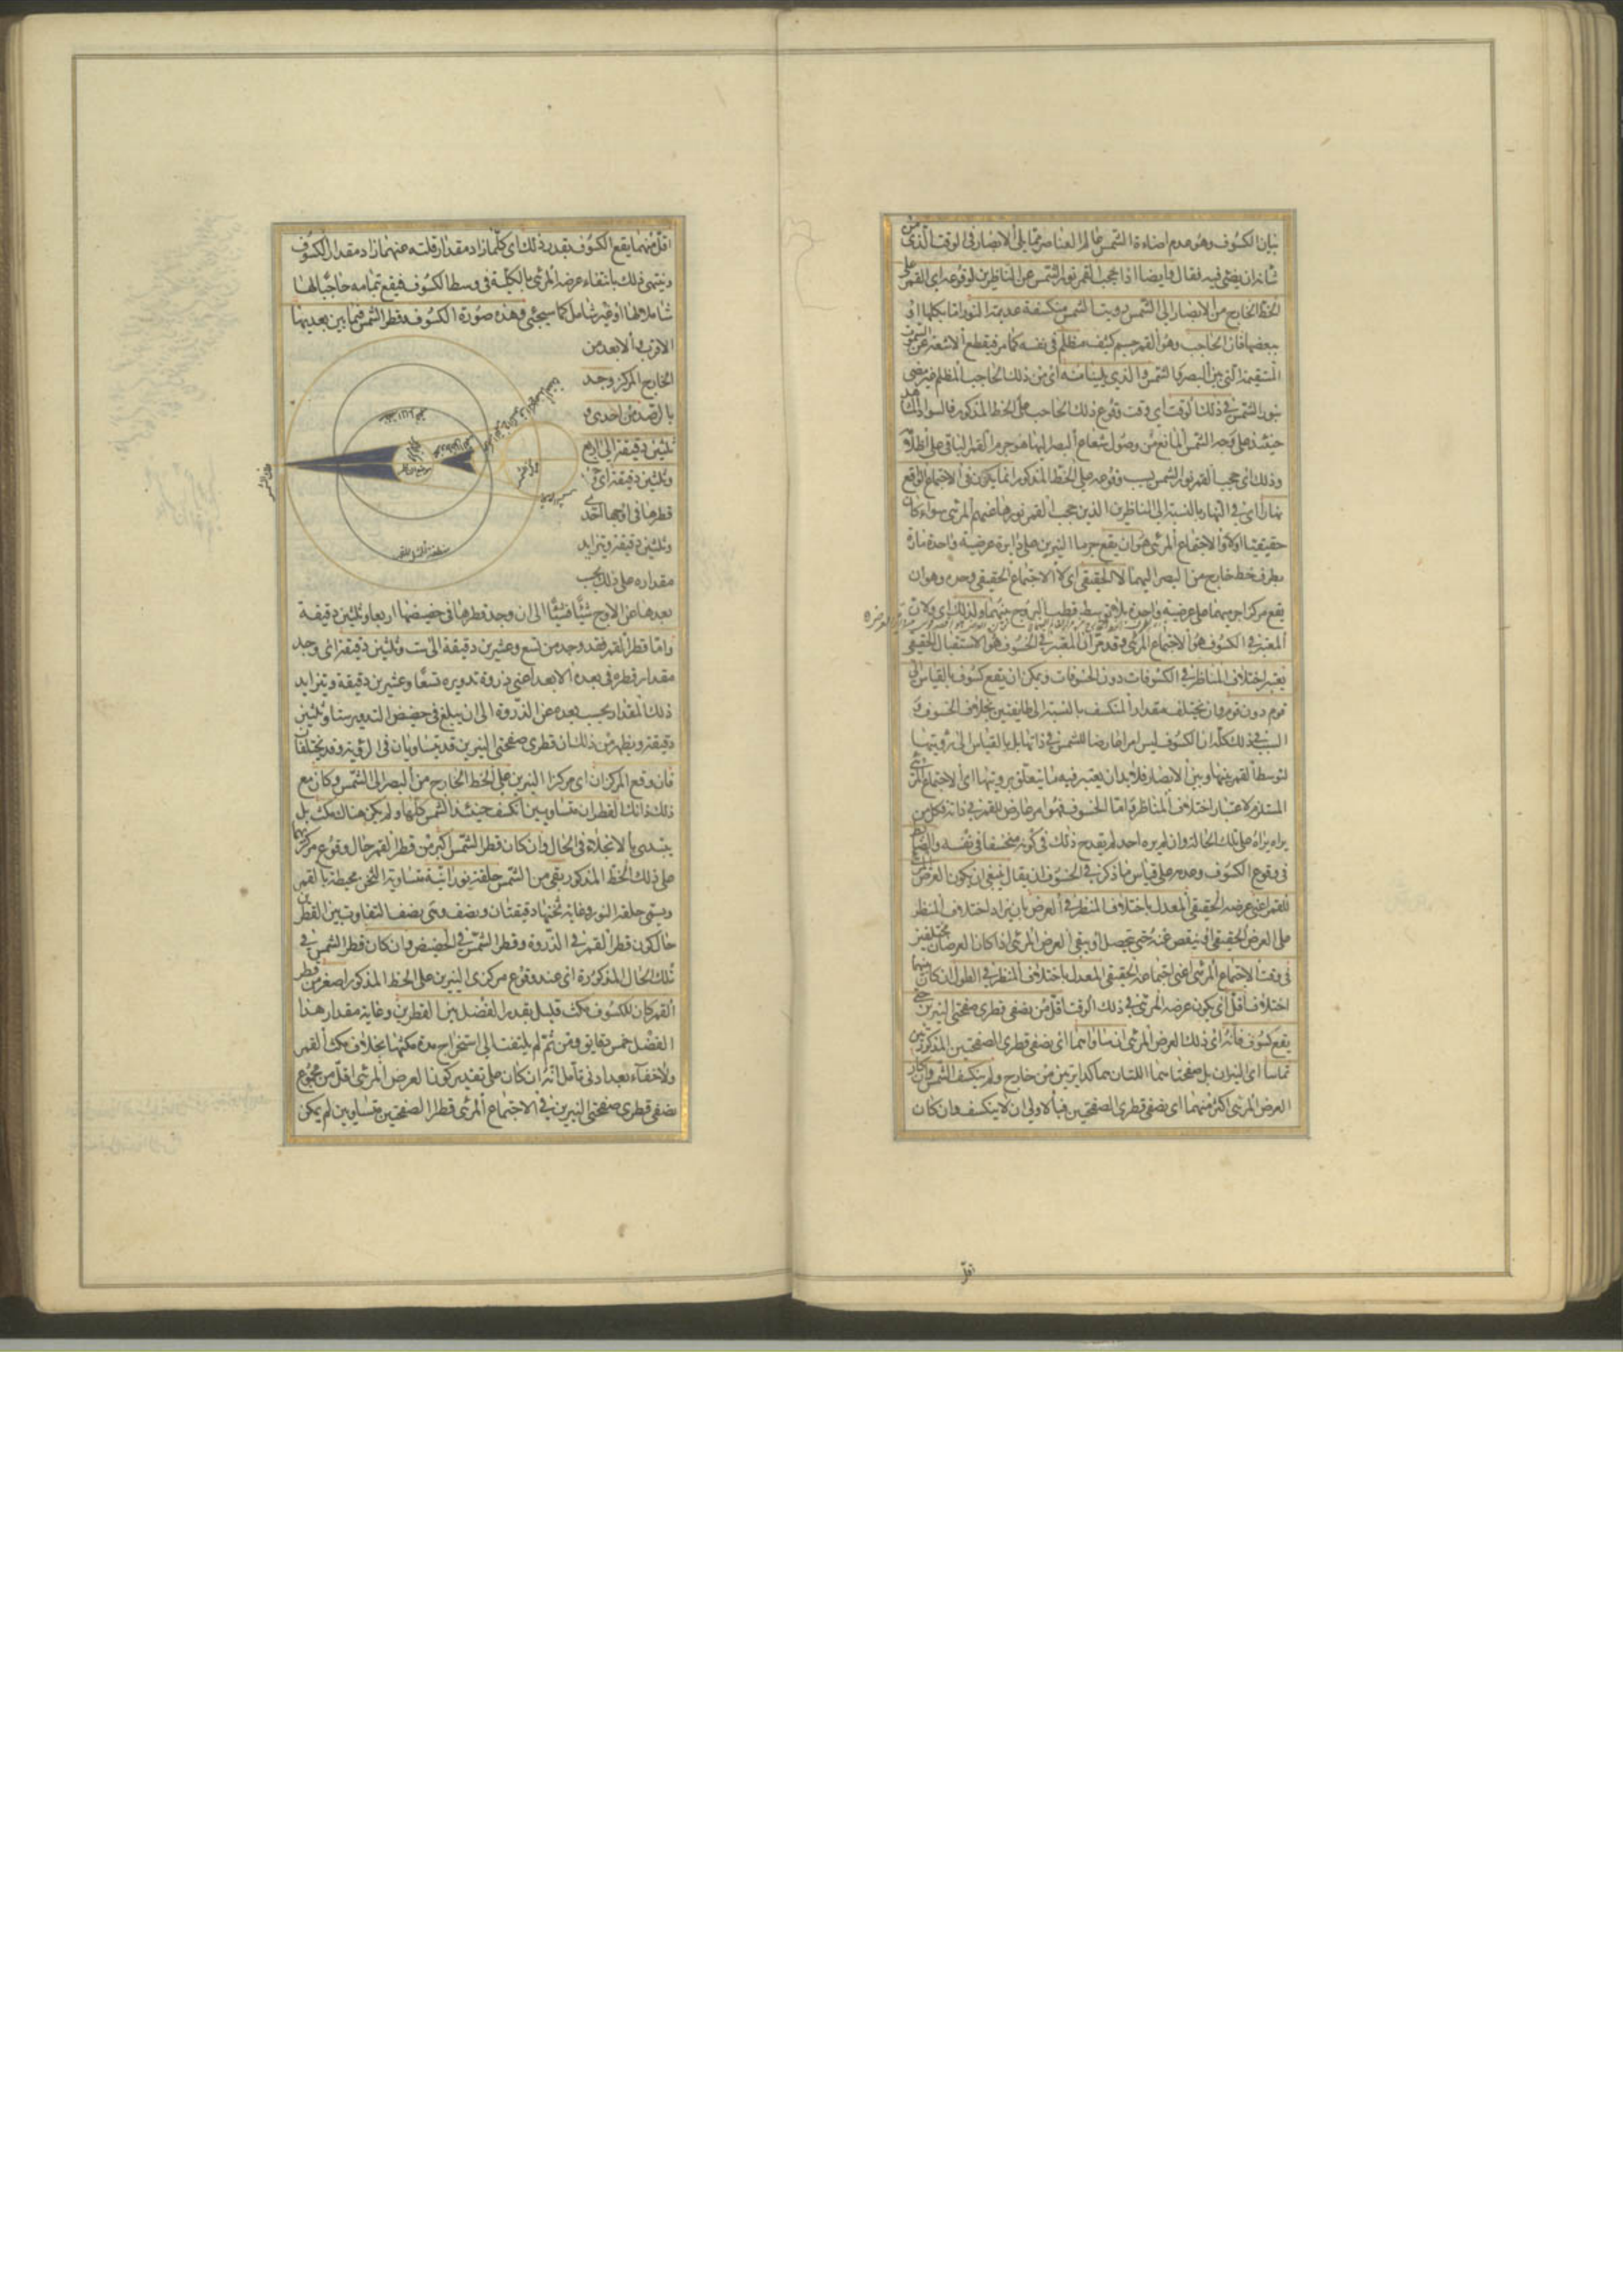 بيان الكسوف وهو عدم اضاءة الشمس عالم العناصر مما يلي الابصار في الوقت الذي من
شانه ان يضئ فيه فقال وايضا اذا حجب القمر نور الشمس عن الناظرين لوقوعه اي القمر على
الخط الخارج من الابصار الى الشمس رويت الشمس منكسفة عديمة النور اما بكلها او
ببعضها فان الحاجب وهو القمر جسم كثيف مظلم في نفسه كما مر فيقطع الاشعة عن السموت
المستقيمة التي بين البصر والشمس والذي يلينا منه اي من ذلك الحاجب المظلم غير مضي
بنور الشمس في ذلك الوقت اي وقت وقوع ذلك الحاجب على الخط المذكور فالسواد الذي
حينئذ على وجه الشمس المانع من وصول شعاع البصر اليها هو جرم القمر الباقي على اظلامه
وذلك اي حجب القمر نور الشمس بسبب وقوعه على الخط المذكور انما يكون في الاجتماع الواقع
نهارا اي في النهار بالنسبة الى الناظرين الذين حجب القمر نورها عنهم المرئي سواء كان
حقيقيا اولا والاجتماع المرئي هو ان يقع جرما النيرين على دايرة عرضية واحدة مارة
بطرف خط خارج من البصر اليهما لا الحقيقي اي لا الاجتماع الحقيقي وحده وهو ان
يقع مركزا جرميهما على عرضية واحدة ولذلك اي ولان
المعتبر في الكسوف هو الاجتماع المرئي وقد مر ان المعتبر في الخسوف هو الاستقبال الحقيقي
يعتبر اختلاف المناظر في الكسوفات دون الخسوفات ويمكن ان يقع كسوف بالقياس الى
قوم دون قوم وان يختلف مقدار المنكسف بالنسبة الى طايفتين بخلاف الخسوف و
السبب في ذلك كله ان الكسوف ليس امرا عارضا للشمس في ذاتها بل بالقياس الى رؤيتها
لتوسط القمر بينها وبين الابصار فلا بد ان يعتبر فيه ما يتعلق برويتها اي الاجتماع المرئي
المستلزم لاعتبار اختلاف المناظر واما الخسوف فهو امر عارض للقمر في ذاته فكل من
يراه يراه على تلك الحالة وان لم يره احد لم يقدح ذلك في كونه منخسفا في نفسه
في وقوع الكسوف وعدمه على قياس ما ذكر في الخسوف ان يقال ينبغي ان يكون العرض
للقمر اعني عرضه الحقيقي المعدل باختلاف المنظر في العرض بان يزاد اختلاف المنظر
على العرض الحقيقي او ينقص عنه حتى يحصل او يبقى العرض المرئي اذا كانا العرضان مختلفين
في وقت الاجتماع المرئي اعني اجتماعه الحقيقي المعدل باختلاف المنظر في الطول ان كان بينهما
اختلاف اقل اي يكون عرضه المرئي في ذلك الوقت اقل من نصفي قطري صفحتي النيرين حتى
يقع كسوف فانه اي ذلك العرض المرئي ان ساواهما اي نصفي قطري الصفحتين المذكورين
تماسا اي النيران بل صفحتاهما اللتان هما كدايرتين من خارج ولم ينكسف الشمس وان كان
العرض المرئي اكثر منهما اي نصفي قطري الصفحتين فبالاولى ان لا ينكسف وان كان
اقل
اقل منهما يقع الكسوف بقدر ذلك اي كلما زاد مقدار قلته عنهما زاد مقدار الكسوف
وينتهي ذلك بانتفاء عرضه المرئي بالكلية في وسط الكسوف فيقع بتمامه حاجبا لها
شاملا لها او غير شامل كما سيجئ وهذه صورة الكسوف وقطر الشمس فيما بين بعديها
الاقرب والابعد من
الخارج المركز وجد
بالرصد من احدى و
ثلثين دقيقة الى اربع
وثلثين دقيقة اي
قطرها في اوجها احدى
وثلثين دقيقة ويتزايد
مقداره على ذلك بحسب
بعدها عن الاوج شيئا فشيئا الى ان وجد قطرها في حضيضها اربعا وثلثين دقيقة
واما قطر القمر فقد وجد من تسع وعشرين دقيقة الى ست وثلثين دقيقة اي وجد
مقدار قطره في بعده الابعد اعني ذروة تدويره تسعا وعشرين دقيقة ويتزايد
ذلك المقدار بحسب بعده عن الذروة الى ان يبلغ في حضيض التدوير ستا وثلثين
دقيقة ويظهر من ذلك ان قطري صفحتي النيرين قد يتساويان في الرؤية وقد يختلفان
فان وقع المركزان اي مركزا النيرين على الخط الخارج من البصر الى الشمس وكان مع
ذلك ذانك القطران متساويين انكسف حينئذ الشمس كلها ولم يكن هناك مكث بل
يبتدئ بالانجلاء في الحال وان كان قطر الشمس اكبر من قطر القمر حال وقوع مركزيهما
على ذلك الخط المذكور يبقى من الشمس حلقة نورانية متساوية الثخن محيطة بالقمر
ويسمى حلقة النور وغاية ثخنها دقيقتان ونصف وهي نصف التفاوت بين القطرين
حال كون قطر القمر في الذروة وقطر الشمس في الحضيض وان كان قطر الشمس في
تلك الحال المذكورة اي عند وقوع مركزي النيرين على الخط المذكور اصغر من قطر
القمر كان للكسوف مكث قليل بقدر الفضل بين القطرين وغاية مقدار هذا
الفضل خمس دقايق ومن ثم لم يلتفت الى استخراج مدة مكثها بخلاف مكث القمر
ولا خفاء بعد ادنى تامل انه ان كان على تقدير كون العرض المرئي اقل من مجموع
نصفي قطري صفحتي النيرين في الاجتماع المرئي قطرا الصفحتين متساويين لم يمكن